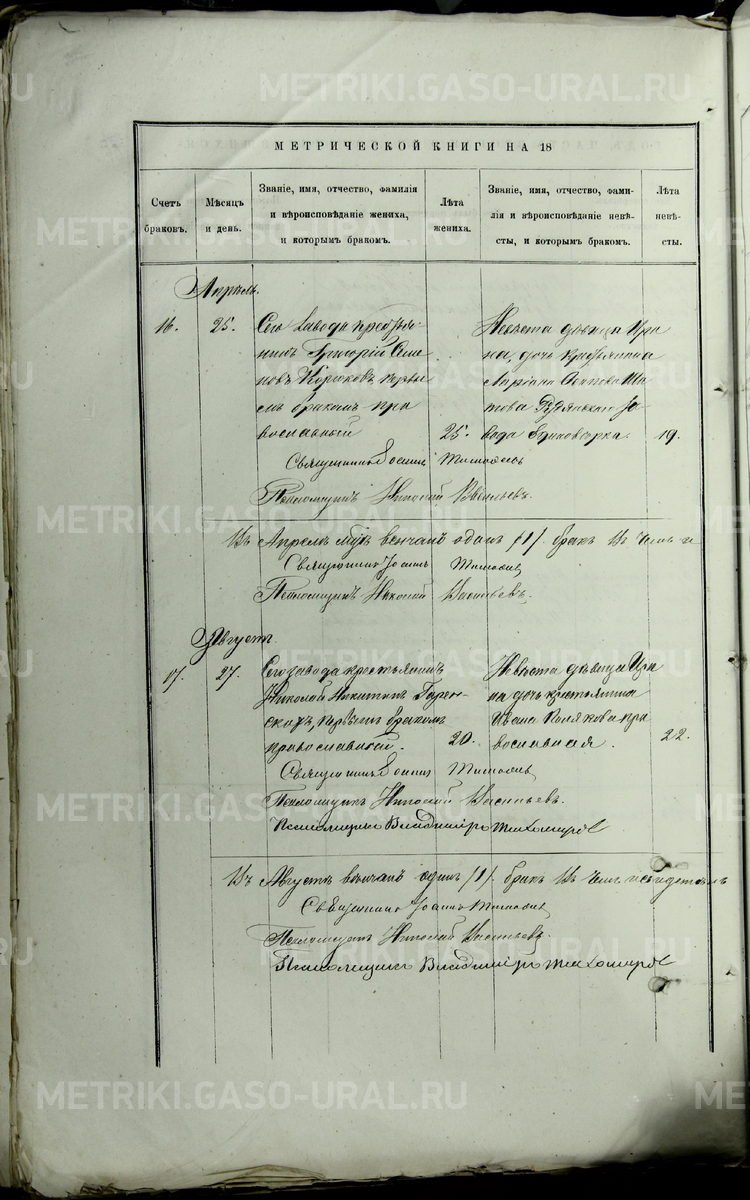 METRIKI.GASO-URAL.RU
МЕТРИЧЕСКОЙ КНИГИ НА 18
Счетъ браковъ.
Мѣсяцъ и день.
Званіе, имя, отчество, фамилія
и вѣроисповѣданіе жениха,
и которымъ бракомъ.
Лѣта
жениха.
Званіе, имя, отчество, фами-
лія и вѣроисповѣданіе невѣ-
сты, и которымъ бракомъ.
Лѣта
невѣ-
сты.
Апрѣль.
16.
25.
Сего завода крестья-
нинъ Григорій Семе-
новъ первы-
мъ бракомъ пра
вославный
25.
Невѣста дѣвица Ири
на, дочь крестьянина
завода Единовѣрка.
19.
Священникъ
Псаломщикъ Николай Васильевъ.
Въ Апрелѣ м-цѣ вѣнчанъ одинъ /1/ бракъ Въ чемъ и
Священникъ Іоаннъ
Псаломщикъ Николай Васильевъ.
Августъ
17.
27.
Сего завода крестьянинъ
Николай Никитинъ
первымъ бракомъ
православный.
20.
Невѣста дѣвица Ири
на дочь крестьянина
Ивана Полякова пра
вославная.
22.
Священникъ
Псаломщикъ Николай Васильевъ.
Псаломщикъ Владиміръ Тихомировъ
Въ Августѣ вѣнчанъ одинъ /1/ бракъ Въ чемъ и свидетель
Священникъ Іоаннъ
Псаломщикъ Николай Васильевъ.
Псаломщикъ Владиміръ Тихомировъ